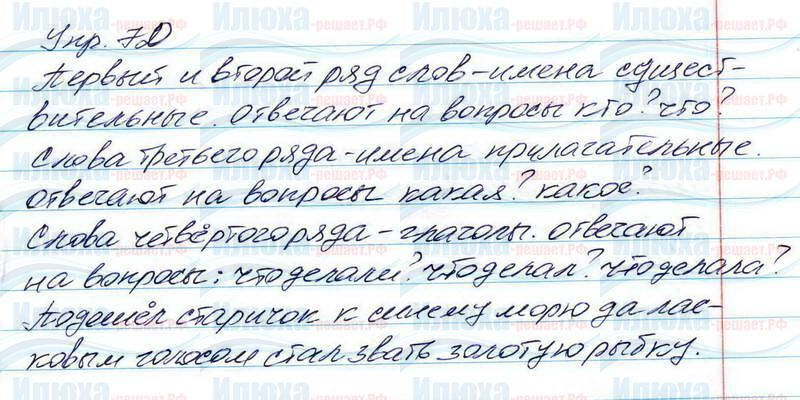 Упр. 70
Первый и второй ряд слов - имена сущест-
вительные. Отвечают на вопросы кто? что?
Слова третьего ряда - имена прилагательные.
Отвечают на вопросы какая? какое?
Слова четвёртого ряда - глаголы. Отвечают
на вопросы: что делали? что делал? что делала?
Подошёл старичок к синему морю да лас-
ковым голосом стал звать золотую рыбку.
Илюха
-решает.РФ